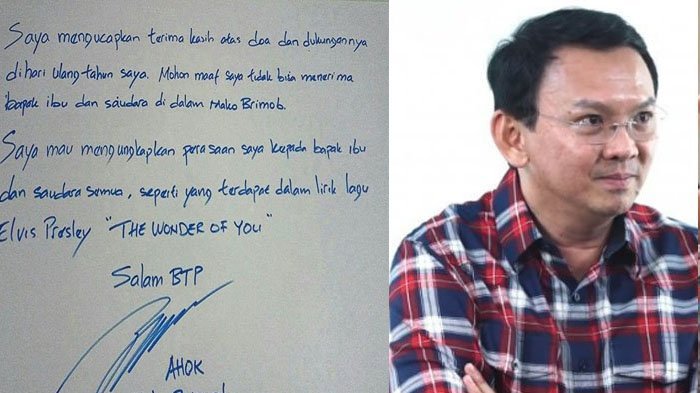 Saya mengucapkan terima kasih atas doa dan dukungannya
dihari ulang tahun saya. Mohon maaf saya tidak bisa menerima
bapak ibu dan saudara di dalam Mako Brimob.
Saya mau mengungkapkan perasaan saya kepada bapak ibu
dan saudara semua, seperti yang terdapat dalam lirik lagu
Elvis Presley "THE WONDER OF YOU"
Salam BTP
AHOK